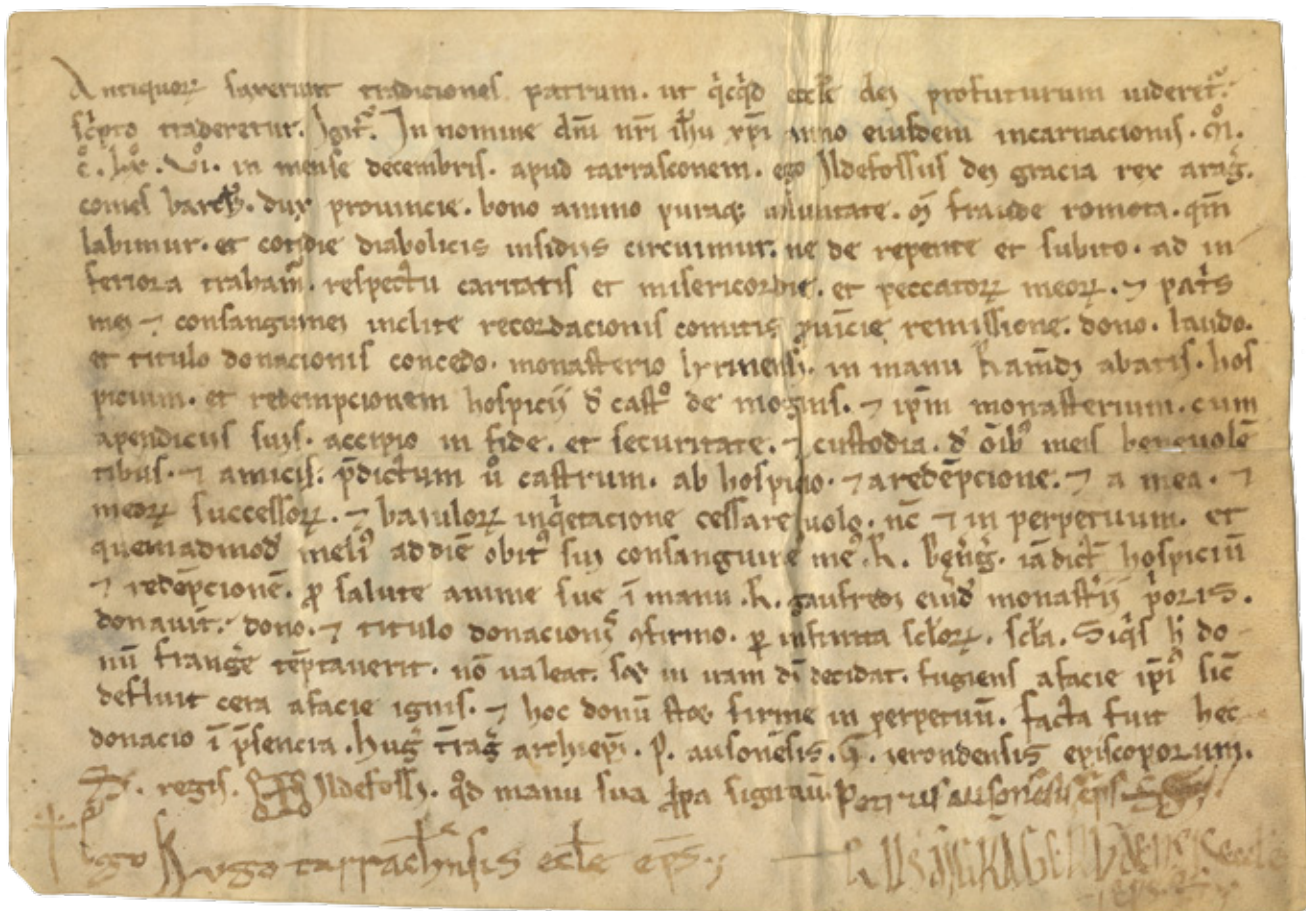 Antiquorꝝ saxerunt tradiciones patrum. ut q̓cq̓d eccl̃e dei profuturum uideret᷑.
sc̓pto traderetur. Igit᷑. In nomine dñi nr̃i ih̃u xp̃i anno eiusdem incarnacionis. ṁ.
c̊. lx̊. vi̊. in mense decembris. apud tarrasconem. ego Ildefossus dei gracia rex arag̃.
comes barch̃. dux prouincie. bono animo puraq; uoluntate. om̃ fraude romota. qm̃
labimur. et cotidie diabolicis insidiis circuimur. ne de repente et subito. ad in
feriora traham᷑. respectu caritatis et misericordie. et peccatorꝝ meorꝝ. ⁊ pat̓s
mei ⁊ consanguinei inclite recordacionis comitis ꝓuincie remissione. dono. laudo.
et titulo donacionis concedo. monasterio lyrinensi. in manu Raim̃di abatis. hos
picium. et redempcionem hospicii d̃ cast̊ de mogins. ⁊ ip̃m monasterium. cum
apendiciis suis. accipio in fide. et securitate. ⁊ custodia. d̃ õib᷒ meis beneuolẽ
tibus. ⁊ amicis. p̃dictum ů castrum. ab hospicio. ⁊ aredẽpcione. ⁊ a mea. ⁊
meorꝝ successorꝝ. ⁊ baiulorꝝ inq̓etacione cessare uolo. nc̃ ⁊ in perpetuum. et
quemadmod̃ meli᷒ ad diẽ obit᷒ sui consanguine me᷒. R. ber̃g̃. iãdict̃ hospiciũ
⁊ redẽpcionẽ. ꝓ salute anime sue ĩ manu. R. gaufredi eiusd̃ monast̓ii p̓oris.
donauit. dono. ⁊ titulo donacionis ꝯfirmo. ꝑ infinita scl̃orꝝ. scl̃a. Siq̓s h̓ do
nũ frang̃e tẽptauerit. nõ ualeat. sꝫ in iram dĩ decidat. fugiens afacie ip̃i᷒ sic̃
defluit cera afacie ignis. ⁊ hoc donũ stet firme in perpetuũ. facta fuit hec
donacio ĩ p̃sencia. hug̃ t̃rag̃ archiep̃i. P. ausonẽsis. G̃. ierondensis episcoporum.
S̃. regis. Ildefossi. qd̊ manu sua ꝓpa signau̓. Petrus ausonẽsis ep̃s
Ego hugo tarrachñsis eccl̃e ep̃s